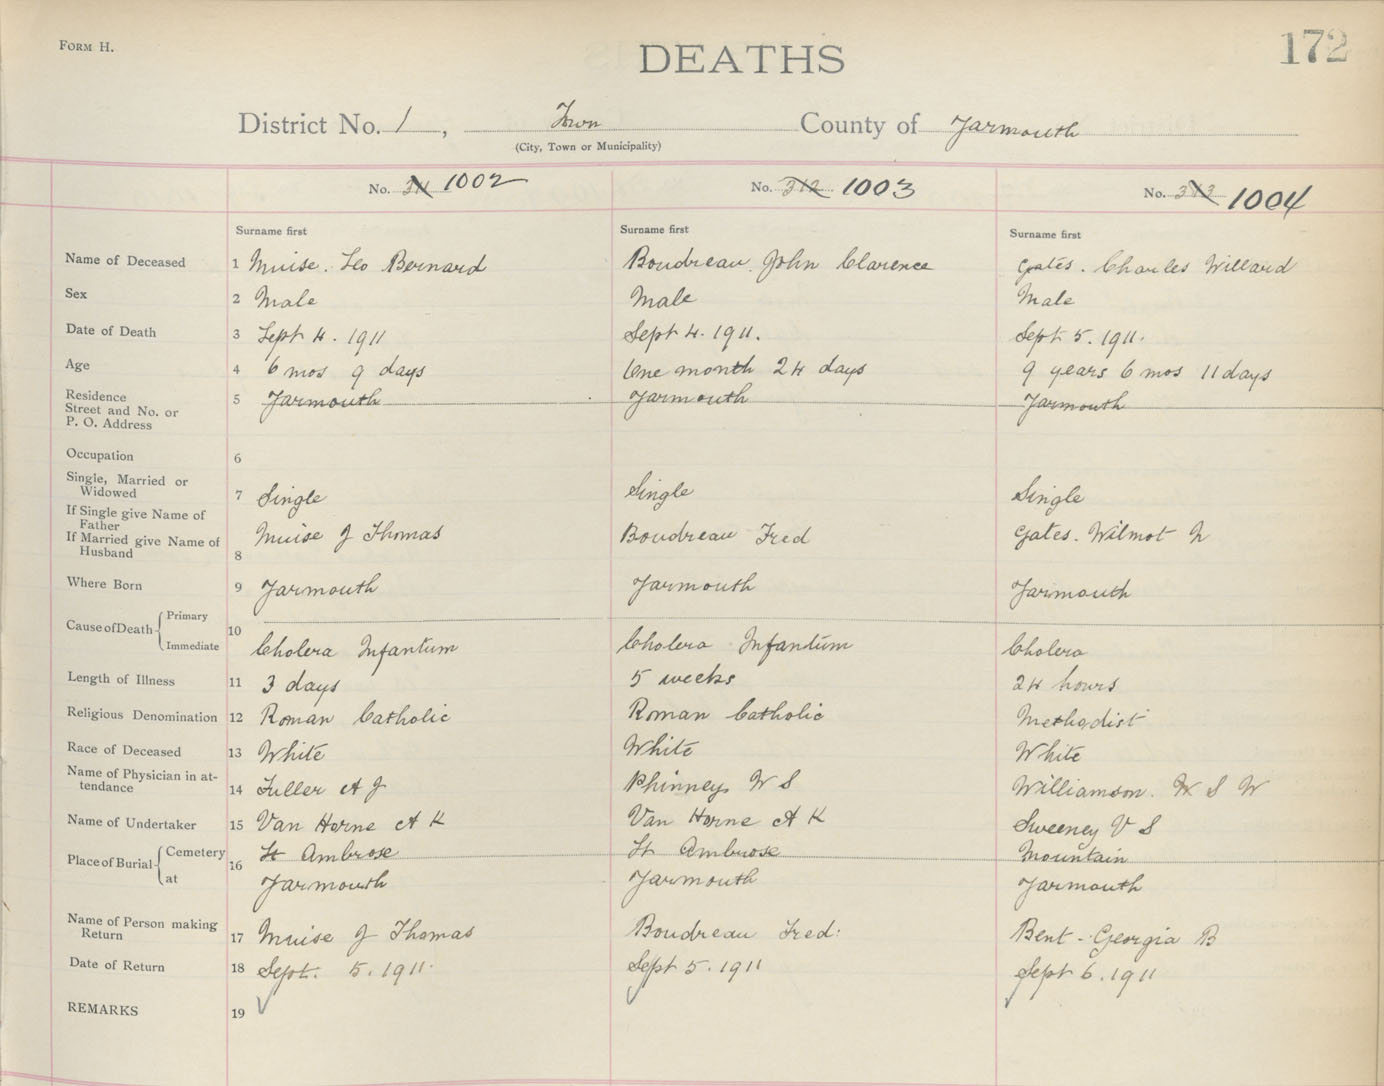 FORM H.
DEATHS
172
District No. 1, Town County of Yarmouth
(City, Town or Municipality)
No. 311 1002 No. 312 1003 No. 313 1004
Surname first Surname first Surname first
Name of Deceased 1 Muise. Leo Bernard Boudreau John Clarence Gates. Charles Willard
Sex 2 Male Male Male
Date of Death 3 Sept 4. 1911 Sept 4. 1911. Sept 5. 1911.
Age 4 6 mos 9 days One month 24 days 9 years 6 mos 11 days
Residence
Street and No. or 5 Yarmouth Yarmouth Yarmouth
P. O. Address
Occupation 6
Single, Married or
Widowed 7 Single Single Single
If Single give Name of
Father
If Married give Name of
Husband 8 Muise J Thomas Boudreau Fred Gates. Wilmot N
Where Born 9 Yarmouth Yarmouth Yarmouth
Cause of Death Primary
10
Immediate Cholera Infantum Cholera Infantum Cholera
Length of Illness 11 3 days 5 weeks 24 hours
Religious Denomination 12 Roman Catholic Roman Catholic Methodist
Race of Deceased 13 White White White
Name of Physician in at-
tendance 14 Fuller A J Phinney W S Williamson. W S W
Name of Undertaker 15 Van Horne A K Van Horne A K Sweeney V S
Place of Burial Cemetery St Ambrose St Ambrose Mountain
16
at Yarmouth Yarmouth Yarmouth
Name of Person making
Return 17 Muise J Thomas Boudreau Fred. Bent - Georgia B
Date of Return 18 Sept. 5. 1911. Sept 5. 1911 Sept 6. 1911
REMARKS 19